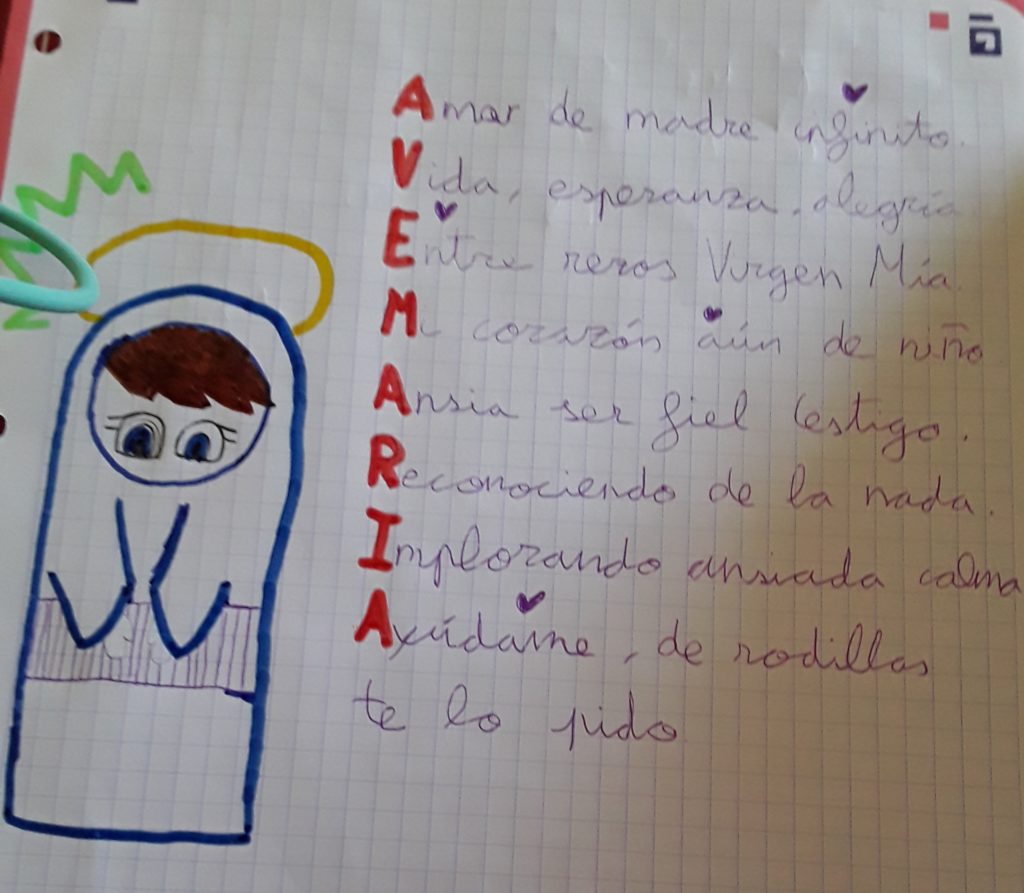 Amar de madre infinito.
Vida, esperanza, alegría
Entre rezos Virgen Mía.
Mi corazón aún de niño
Ansia ser fiel testigo.
Reconociendo de la nada.
Implorando ansiada calma
Ayúdame, de rodillas
te lo pido